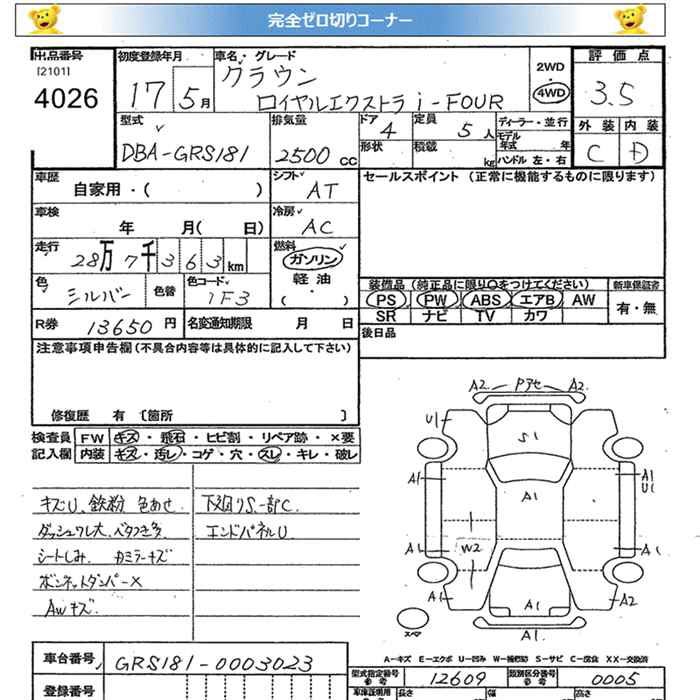 完全ゼロ切りコーナー
出品番号
[2101]
4026
初度登録年月
17 5月
車名・グレード
クラウン
ロイヤルエクストラ i-FOUR
2WD
4WD
評価点
3.5
外装 内装
C D
型式
DBA-GRS181
排気量
2500 cc
ドア
4
形状
定員
5 人
積載
kg
ディーラー・並行
モデル年式 年
ハンドル 左・右
車歴
自家用・( )
シフト
AT
セールスポイント (正常に機能するものに限ります)
車検
年 月( 日)
冷房
AC
走行
28万7千363km
燃料
ガソリン
軽油
( ・ )
色
シルバー
色替
色コード
1F3
装備品 (純正品に限り○をつけてください)
新車保証書
PS PW ABS エアB AW
有・無
SR ナビ TV カワ
R券 13650 円
名変通知期限 月 日
後日品
注意事項申告欄 (不具合内容等は具体的に記入して下さい)
修復歴 有 [箇所 ]
検査員 FW キズ・飛石・ヒビ割・リペア跡・×要
記入欄 内装 キズ・汚レ・コゲ・穴・スレ・キレ・破レ
キズU、鉄粉 色あせ
ダッシュワレ大、ベタつき多
シートしみ、カミラーキズ
ボンネットダンパー×
AWキズ
下廻りS一部C
エンドパネルU
A2 Pアセ A2
U1
S1
A1
A1
U1
A1
W2
A1
A1
A1
A1
A2
A1
スペア
A-キズ E-エクボ U-凹み W-補修跡 S-サビ C-腐食 XX-交換済
車台番号 GRS181-0003023
登録番号
型式指定番号 参考 12609
類別区分番号 参考 0005
車庫証明用
長さ 幅 高さ